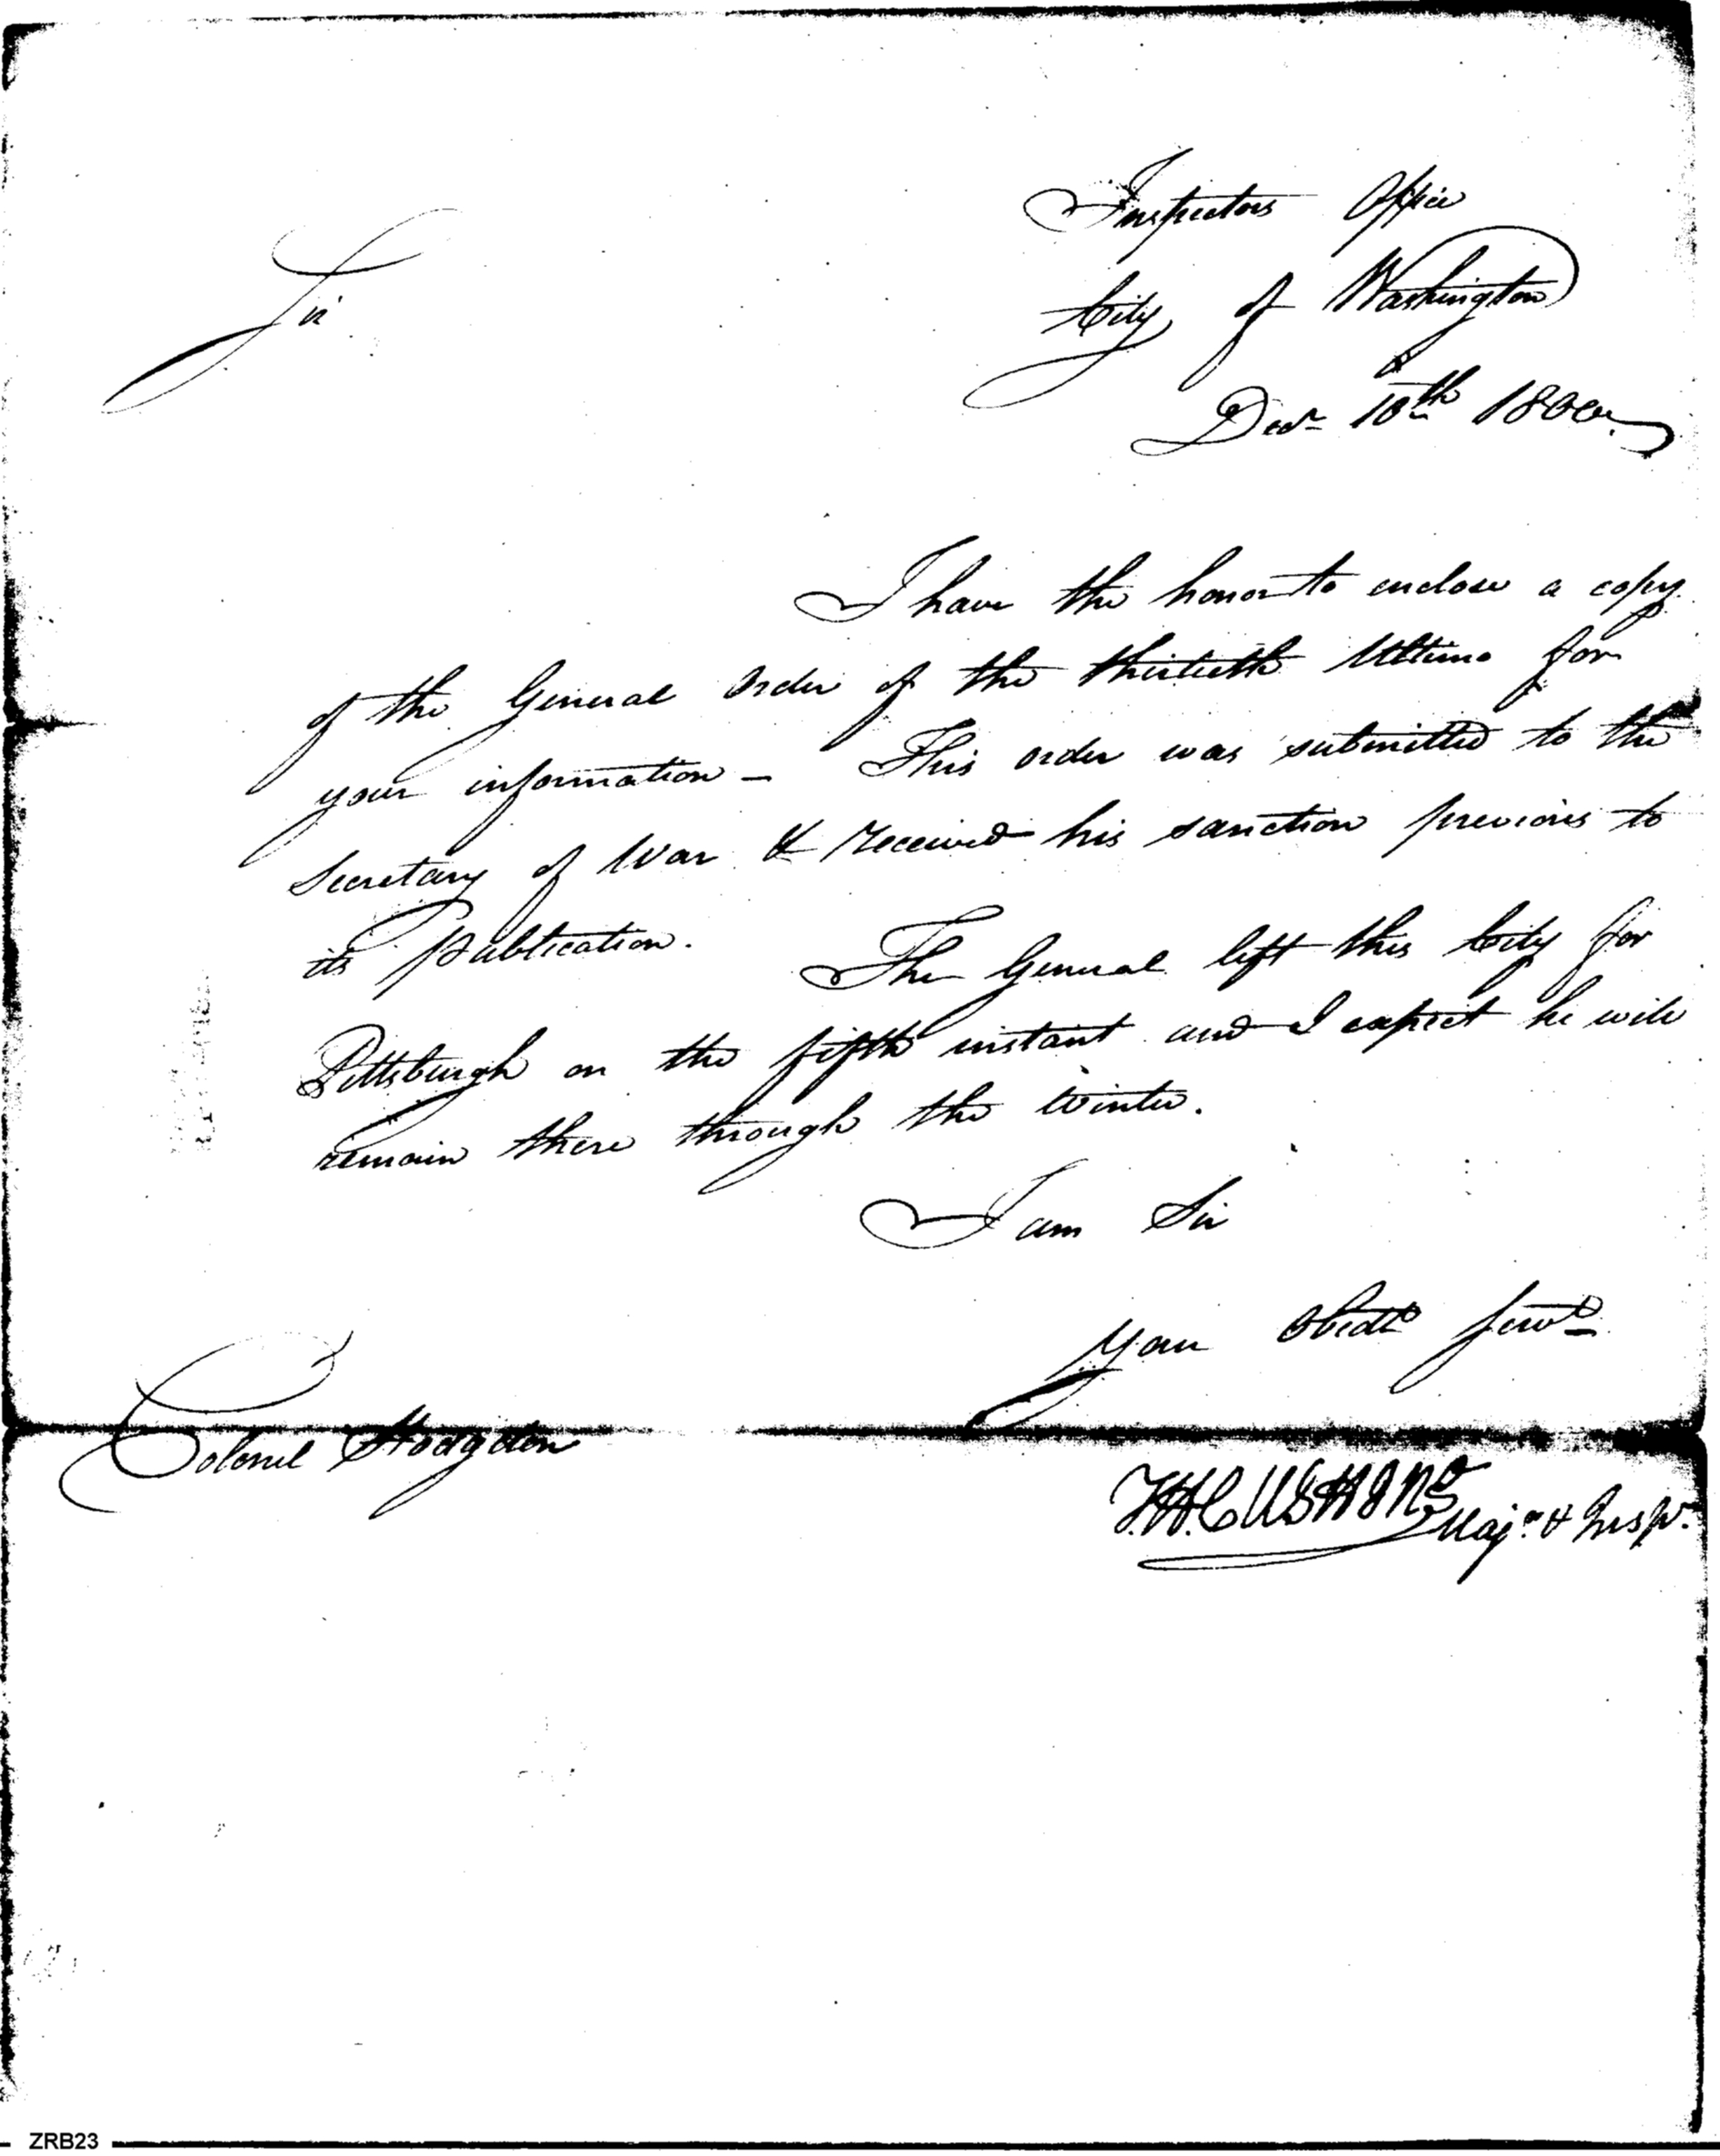 Inspectors Office
City of Washington
Decr 10th 1800
Sir
I have the honor to enclose a copy
of the General Order of the thirtieth Ultimo for
your information - This order was submitted to the
Secretary of War & received his sanction previous to
its Publication. The General left this City for
Pittsburgh on the fifth instant and I expect he will
remain there through the Winter.
I am Sir
Your Obedt Servt
Colonel Hodgdon
T.H.CUSHING Majr. & Inspr.
ZRB23